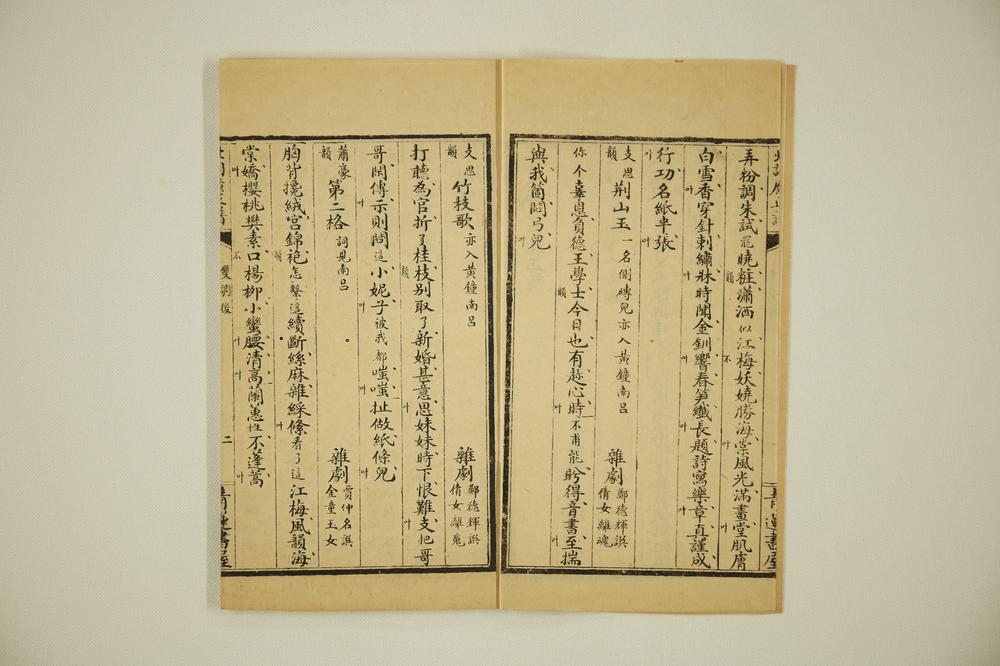 弄粉調朱試罷曉粧瀟洒似江梅妖嬈勝海棠風光滿畫堂肌膚
白雪香穿針刺繡牀時聞金釧響春笋纖長題詩寫樂章真謹成
行功名紙半張
支思韻 荆山玉 一名側磚兒亦入黃鐘南呂 雜劇 鄭德輝譔倩女離魂
你个辜恩負德王學士今日也有趂心時不甫能盻得音書至揣
與我箇悶弓兒
支思韻 竹枝歌 亦入黃鐘南呂 雜劇 鄭德輝譔倩女離魂
打聽為官折了桂枝别取了新婚甚意思妹妹時下恨難支把哥
哥閑傳示則問這小妮子被我都嗤嗤扯做紙條兒
蕭豪韻 第二格 詞見南呂 雜劇 賈仲名譔金童玉女
胸背攙絨宮錦袍怎繫這續斷絲麻雜綵絛看了這江梅風韻海
棠嬌櫻桃樊素口楊柳小蠻腰清高蘭蕙性不蓬蒿
雙調後
二
青蓮書屋